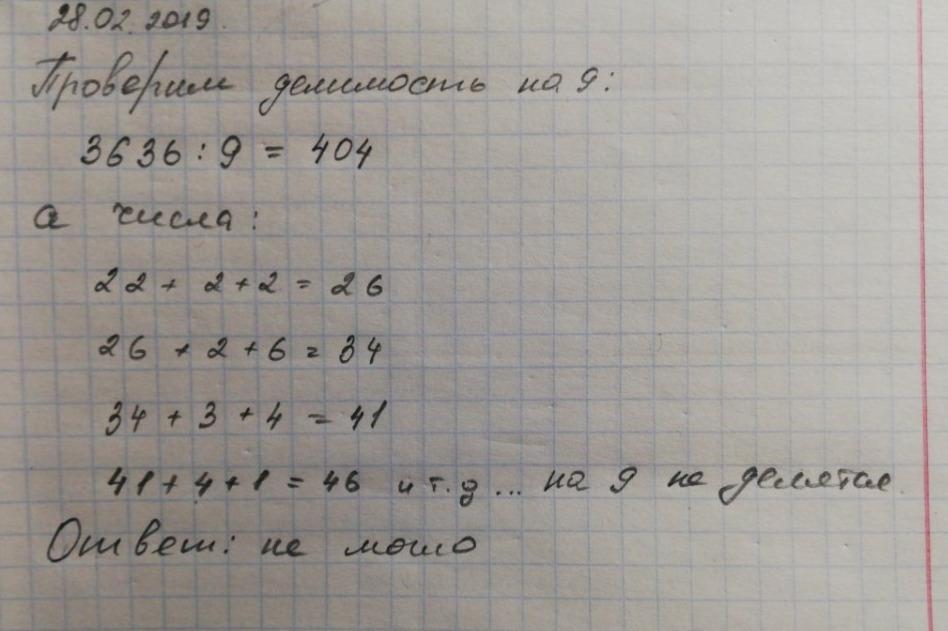 28.02.2019.
Проверим делимость на 9:
3636 : 9 = 404
а числа:
22 + 2+2 = 26
26 + 2 + 6 = 34
34 + 3 + 4 = 41
41 + 4 + 1 = 46 и т.д ... на 9 не делятся.
Ответ: не могло